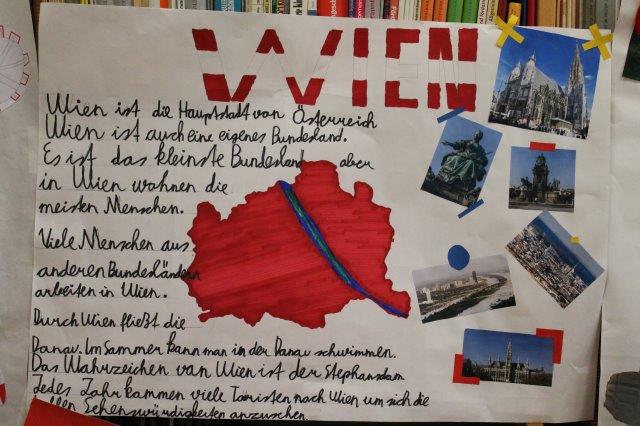 WIEN
Wien ist die Hauptstadt von Österreich
Wien ist auch eine eigenes Bundesland.
Es ist das kleinste Bundesland aber
in Wien wohnen die
meisten Menschen.
Viele Menschen aus
anderen Bundesländern
arbeiten in Wien.
Durch Wien fließt die
Danau. Im Sammer kann man in der Danau schwimmen.
Das Wahrzeichen van Wien ist der Stephansdam
Jedes Jahr kammen viele Tauristen nach Wien um sich die
tollen Sehenswürdigkeiten anzuschen.